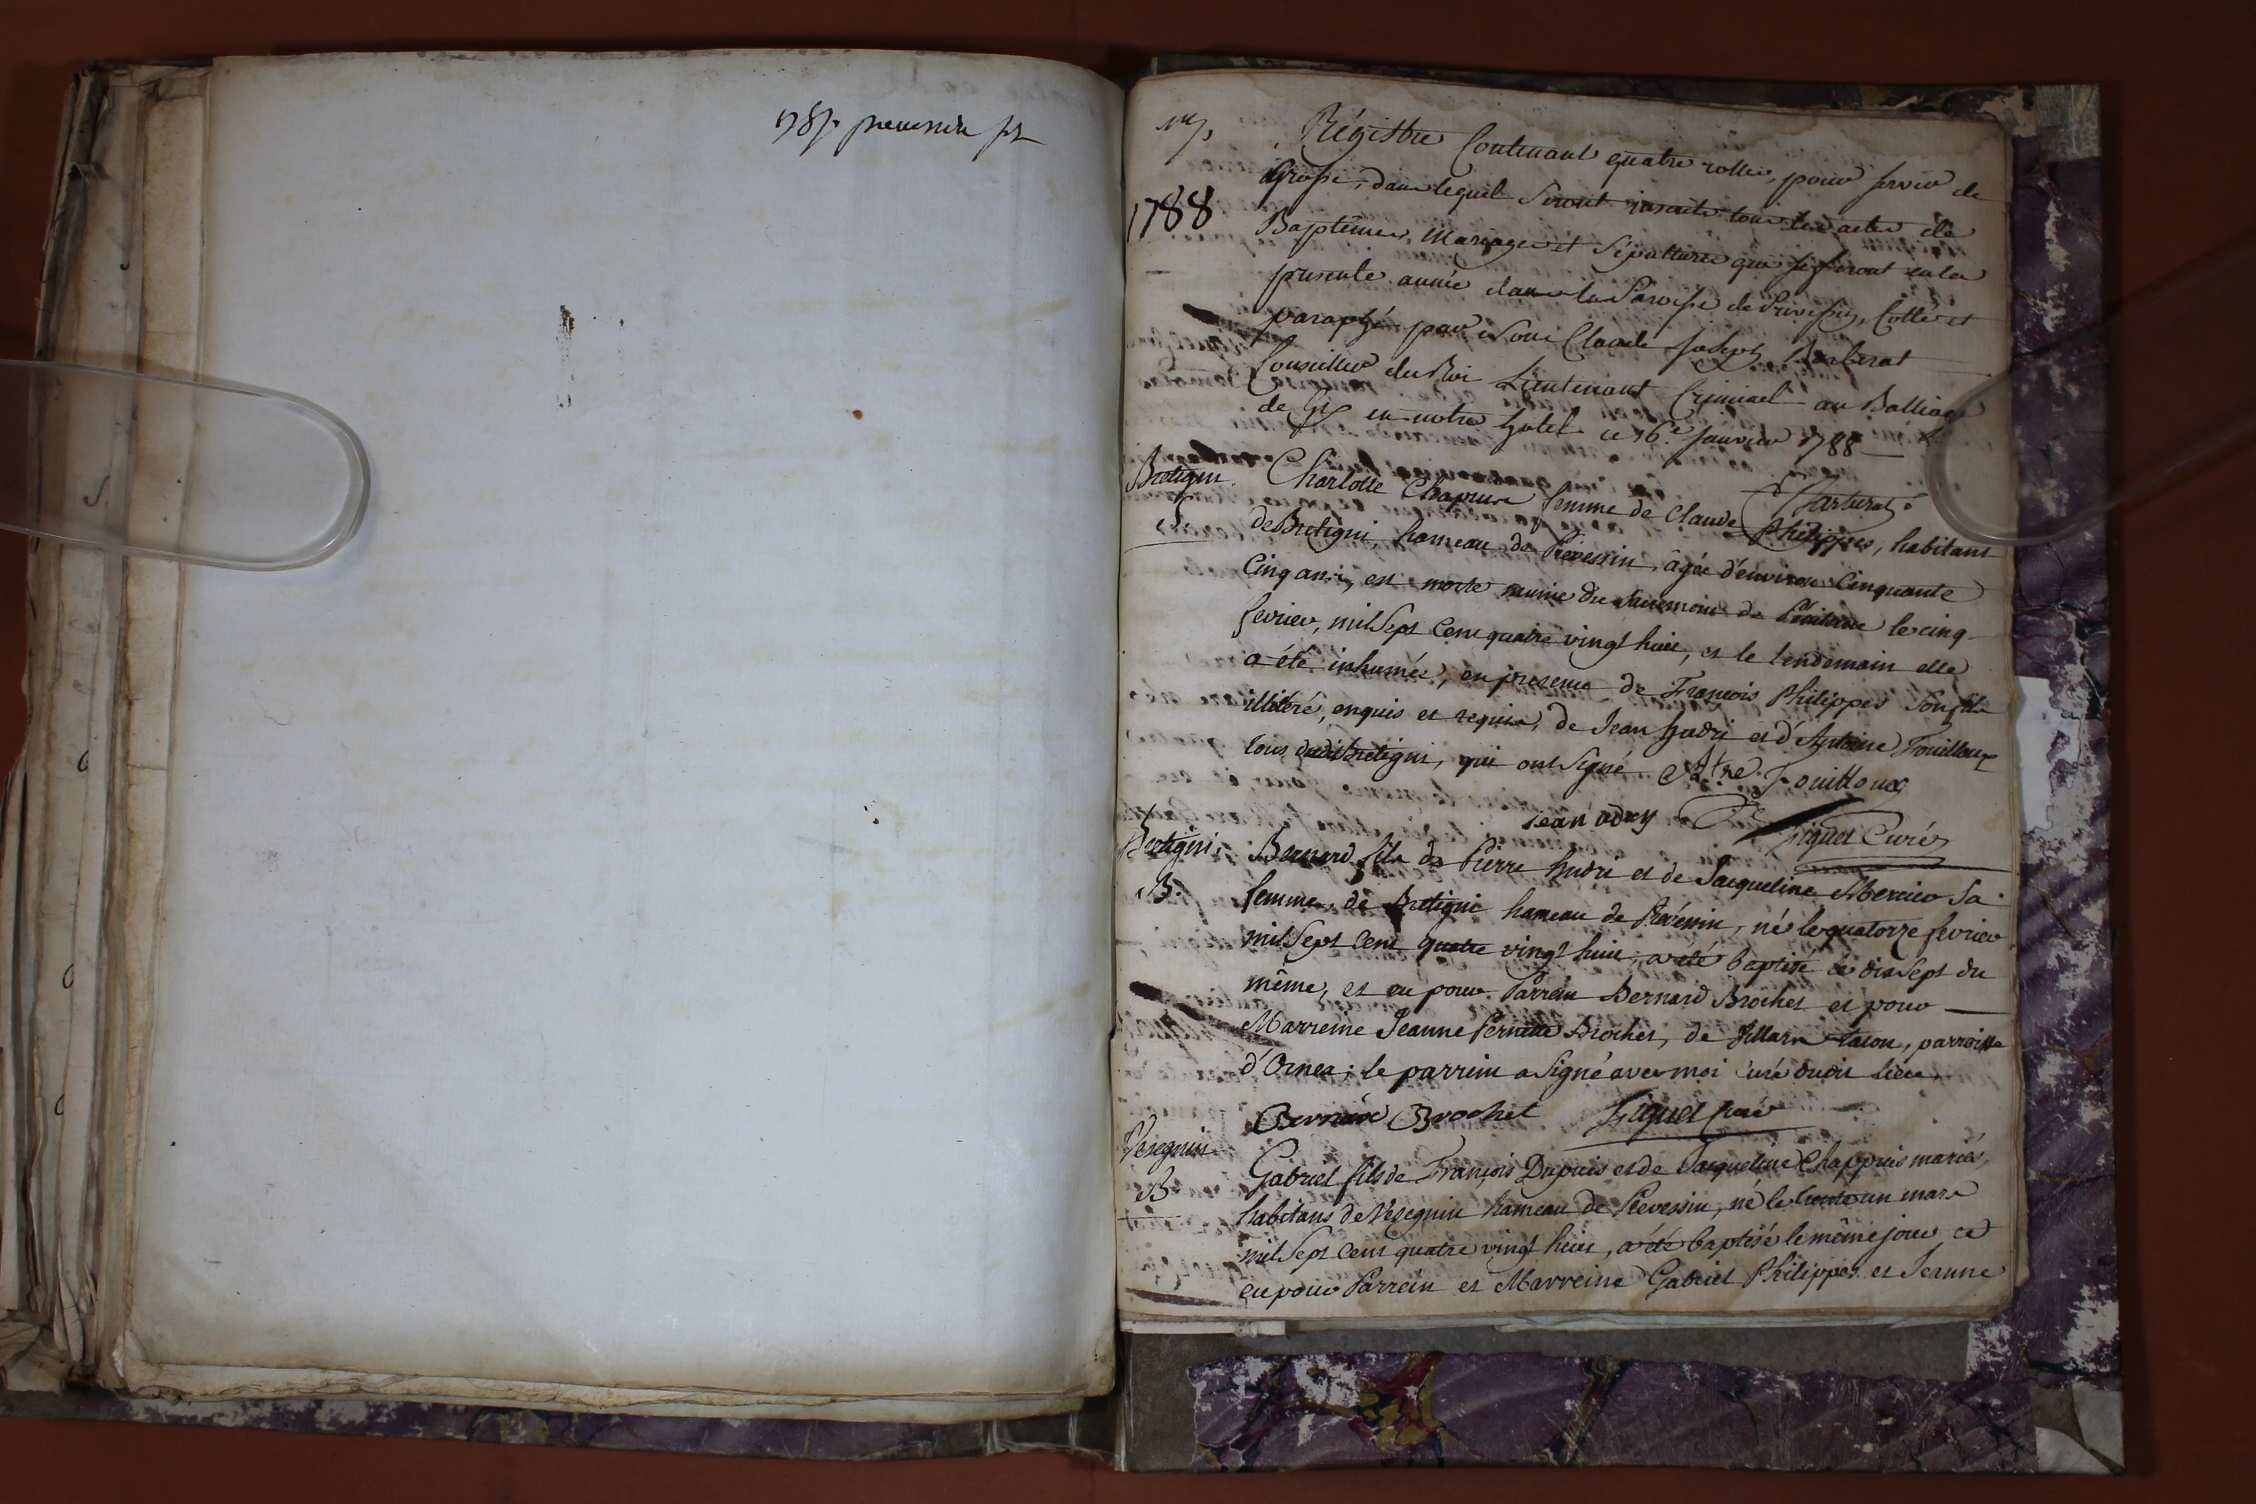 1787.
1788
Régistre Contenant quatre rolles, pour servir de
Grosse, dans lequel Seront inscrits tous les actes de
Baptêmes, Mariages et Sépultures qui se feront en la
presente année dans la Paroisse de Prevessin, Cotté et
paraphé par Nous Claude Joseph
Conseiller du Roi Lieutenant Criminel au Balliage
de Gex en notre hotel ce 16.e Janvier 1788
Bretigni
S
Charlotte Chapuis femme de Claude Philippes, habitant
de Bretigni, hameau de Prevessin, agée d'environ Cinquante
Cinq ans, est morte munie du Sacrement de Pénitence le cinq
fevrier, mil Sept Cent quatre vingt huit, et le lendemain elle
a été inhumée, en presence de François Philippes son fils
illiteré, enquis et requis, de Jean hudri et d'Antoine Fouilloux
tous dudit Bretigni, qui ont Signé Ant.ne Fouilloux
jean udry
Curé
Bretigni
B.
Bernard fils de Pierre hudri et de Jacqueline Mercier Sa
femme, de Bretigni hameau de Prévessin, né le quatorze fevrier
mil Sept Cent quatre vingt huit, a été baptisé ce dix Sept du
même, et eu pour Parrein Bernard Brochet et pour
Marreine Jeanne Pernette Brochet, de Villars tacon, parroisse
d'Ornex; le parrein a Signé avec moi Curé dudit lieu.
Bernard Brochet Curé
Vesegnin
B
Gabriel fils de François Dupuis et de Jacqueline Chappuis mariés,
habitans de Vesegnin hameau de Prevessin, né le trente un mars
mil Sept Cent quatre vingt huit, a été baptisé le même jour et
eu pour Parrein et Marreine Gabriel Philippes et Jeanne